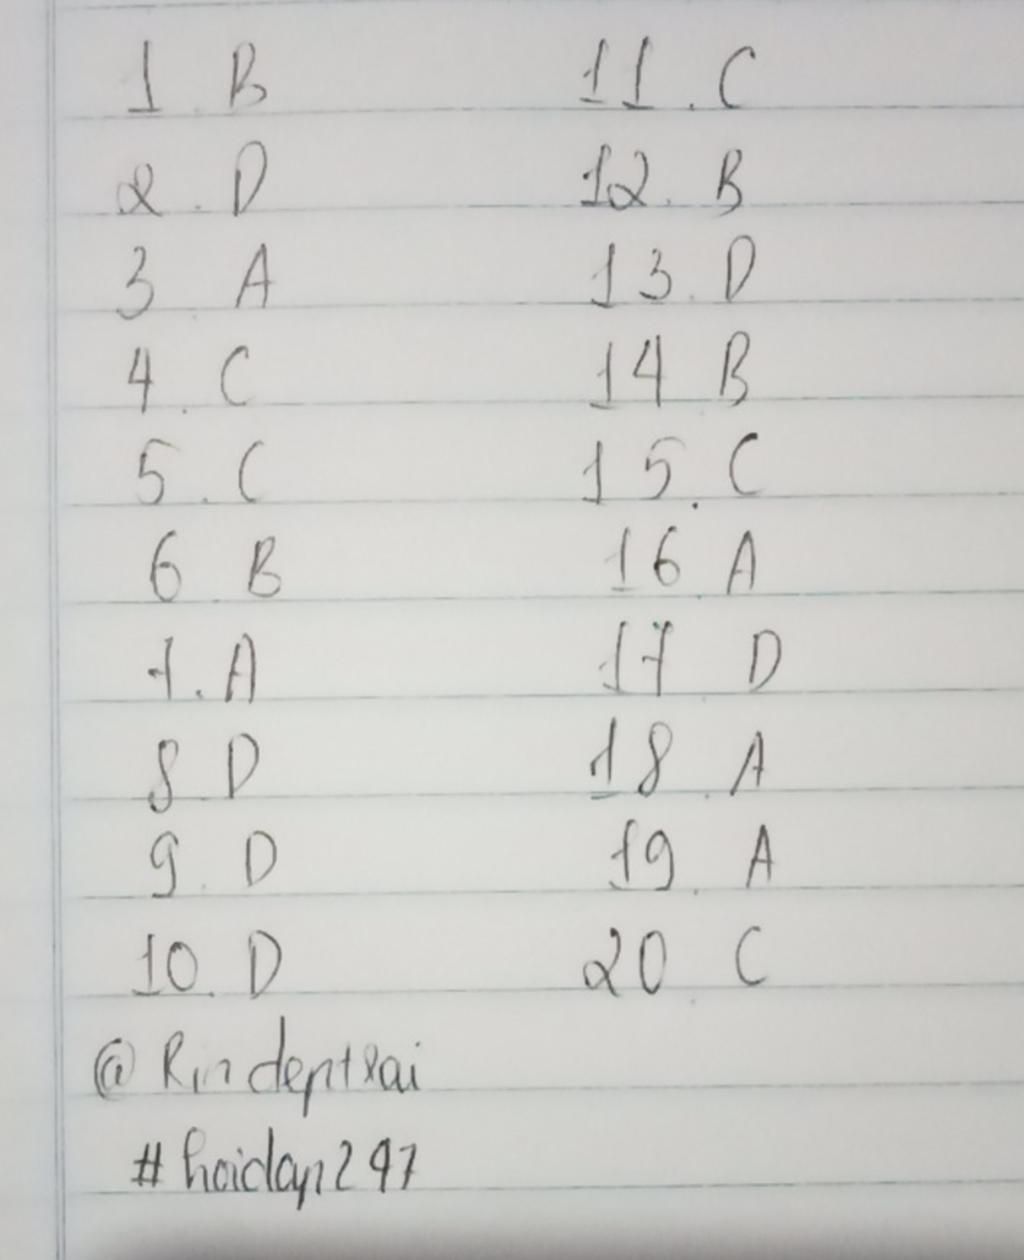 1. B
2. D
3. A
4. C
5. C
6. B
7. A
8. D
9. D
10. D
11. C
12. B
13. D
14 B
15. C
16. A
17 D
18. A
19. A
20. C
@Rindeptxai
#hoidap247